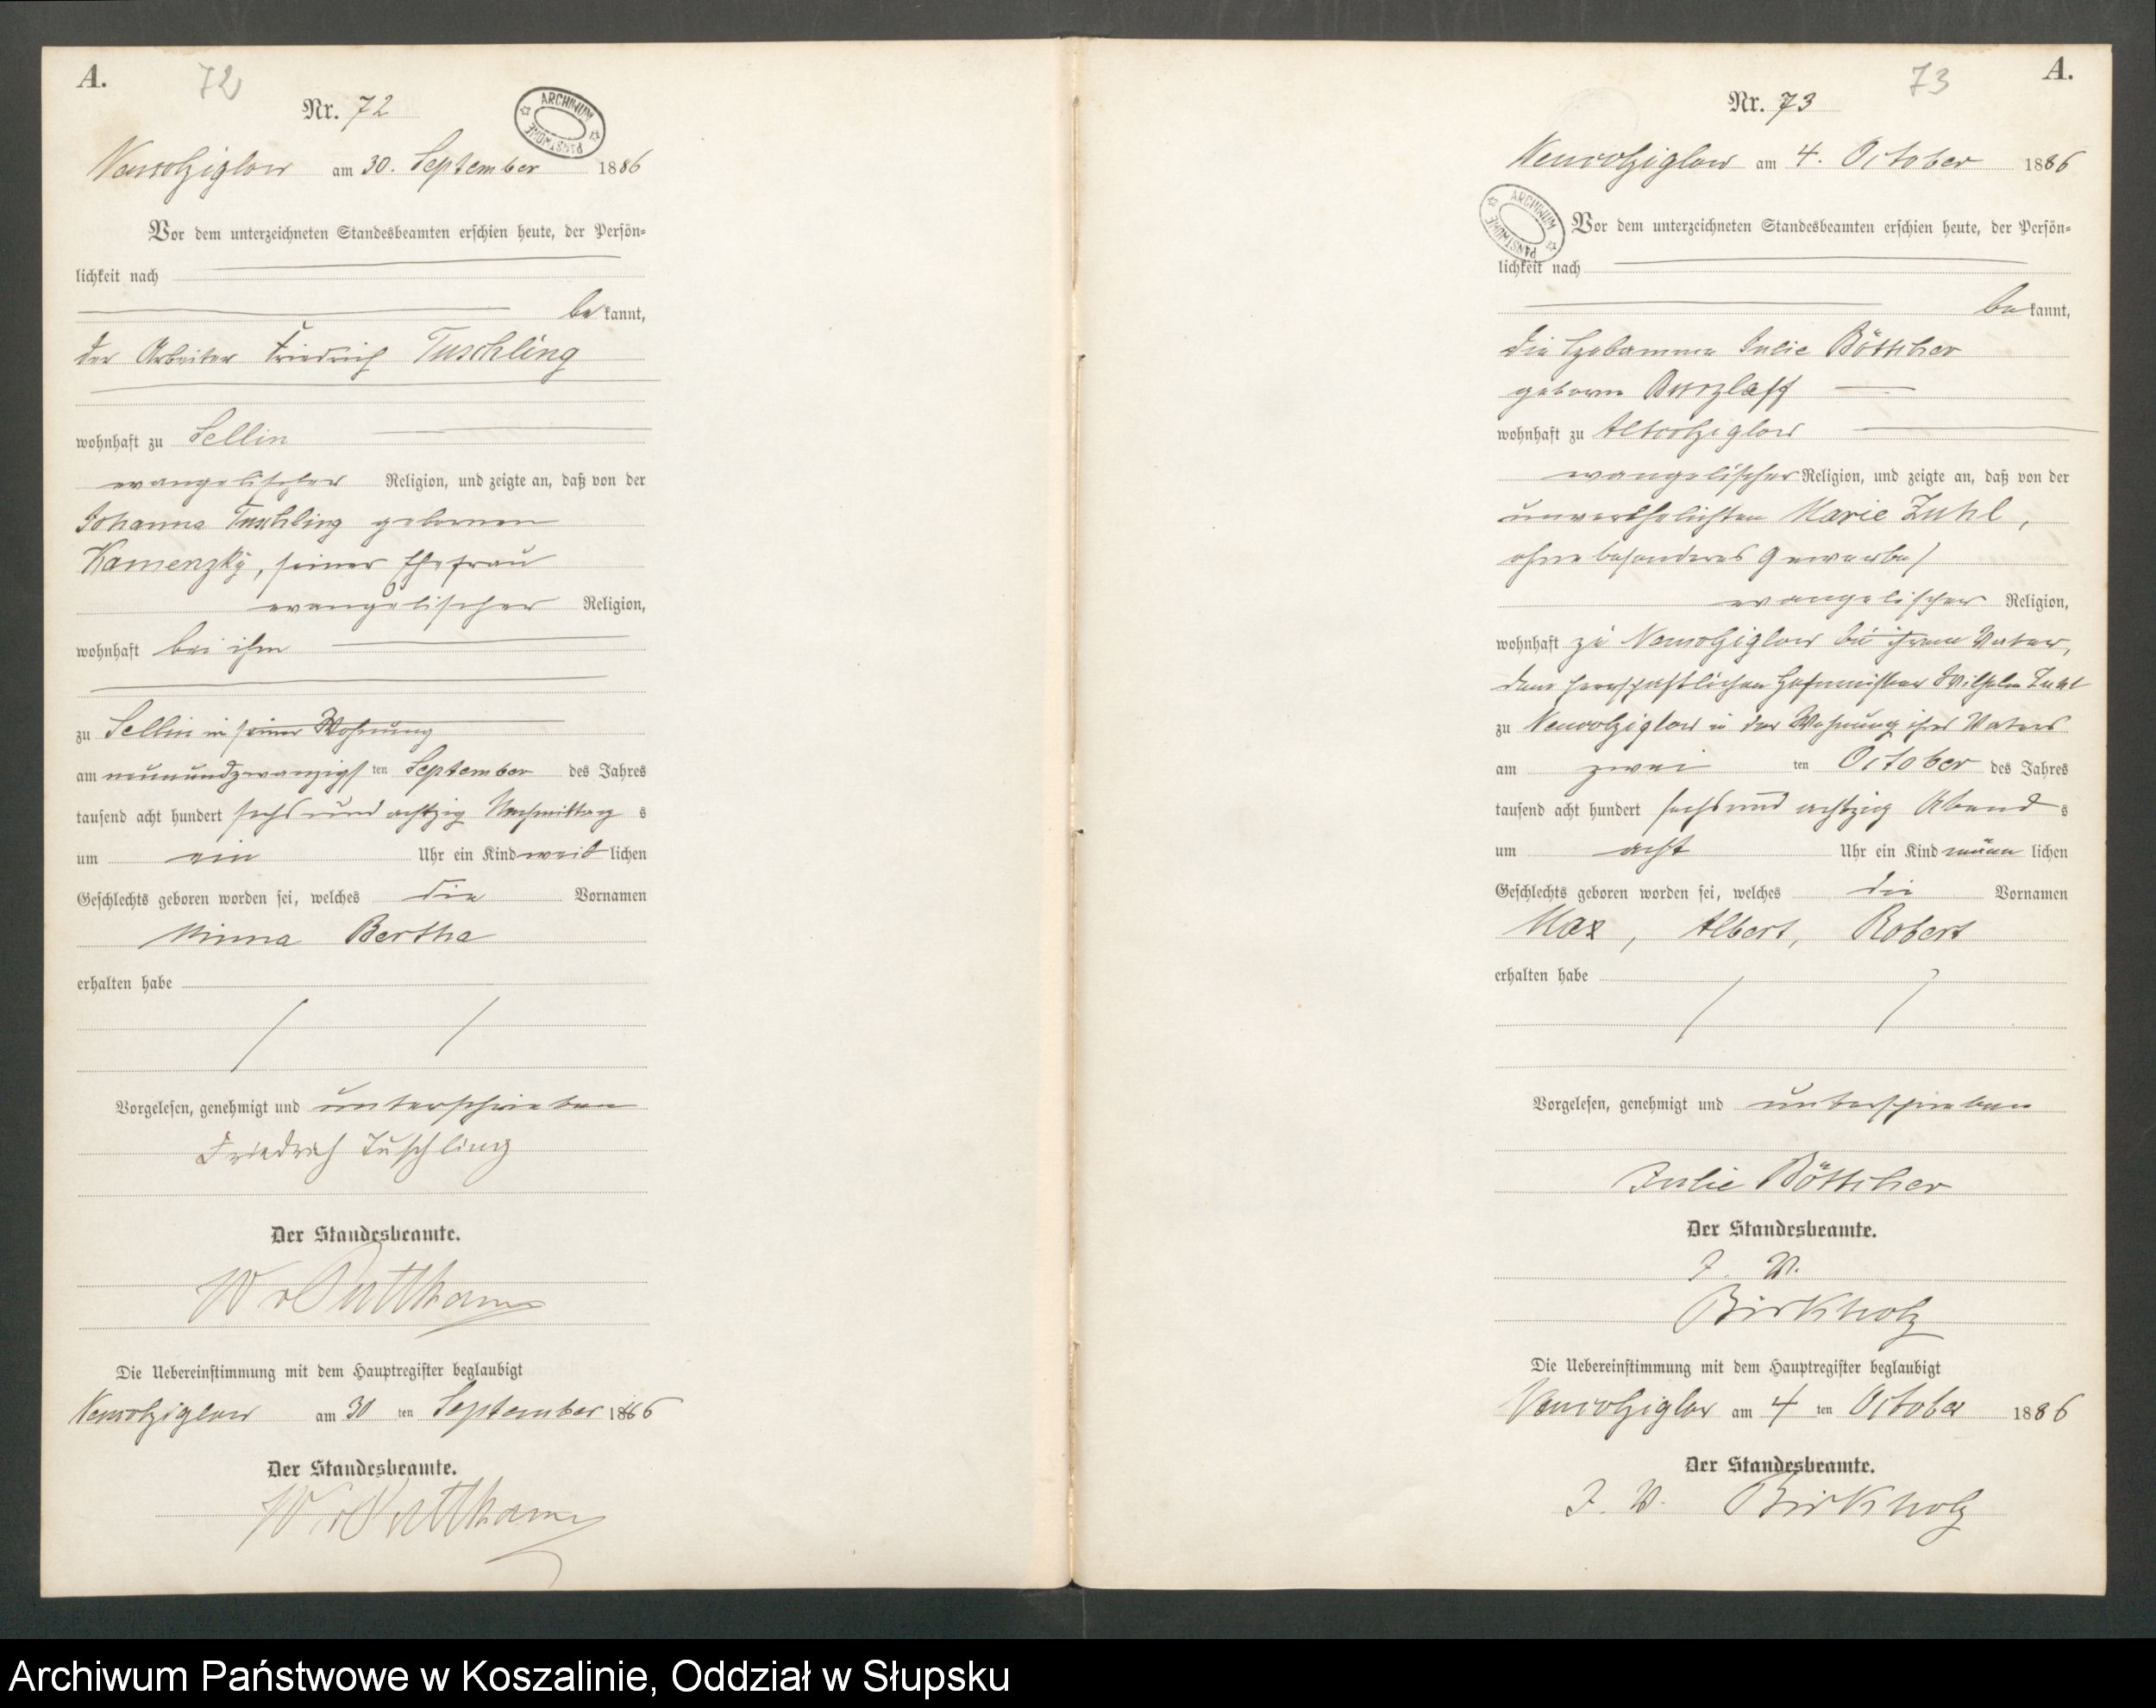 A.
72
Nr. 72
ARCHIWUM PAŃSTWOWE
Neuwolziglow am 30. September 1886
Vor dem unterzeichneten Standesbeamten erschien heute, der Persön-
lichkeit nach
bekannt,
der Arbeiter Friedrich Tuschling
wohnhaft zu Sellin
evangelischer Religion, und zeigte an, daß von der
Johanna Tuschling geborenen
Kamenzky, seiner Ehefrau
evangelischer Religion,
wohnhaft bei ihm
zu Sellin in seiner Wohnung
am neunundzwanzigsten September des Jahres
tausend acht hundert sechs und achtzig Nachmittags
um ein Uhr ein Kind weiblichen
Geschlechts geboren worden sei, welches die Vornamen
Minna Bertha
erhalten habe
Vorgelesen, genehmigt und unterschrieben
Friedrich Tuschling
Der Standesbeamte.
W v Puttkamer
Die Uebereinstimmung mit dem Hauptregister beglaubigt
Neuwolziglow am 30 ten September 1886
Der Standesbeamte.
W v Puttkamer
A.
73
Nr. 73
Neuwolziglow am 4. October 1886
ARCHIWUM PAŃSTWOWE
Vor dem unterzeichneten Standesbeamten erschien heute, der Persön-
lichkeit nach
bekannt,
die Hebamme Julie Böttcher
geborne Buzlaff
wohnhaft zu Altwolziglow
evangelischer Religion, und zeigte an, daß von der
unverehelichten Marie Zuhl,
ohne besonderes Gewerbe,
evangelischer Religion,
wohnhaft zu Neuwolziglow bei ihrem Vater,
dem herrschaftlichen Hofmeister Wilhelm Zuhl
zu Neuwolziglow in der Wohnung ihres Vaters
am zweiten October des Jahres
tausend acht hundert sechs und achtzig Abends
um acht Uhr ein Kind männlichen
Geschlechts geboren worden sei, welches die Vornamen
Max, Albert, Robert
erhalten habe
Vorgelesen, genehmigt und unterschrieben
Julie Böttcher
Der Standesbeamte.
J. V.
Birkholz
Die Uebereinstimmung mit dem Hauptregister beglaubigt
Neuwolziglow am 4 ten October 1886
Der Standesbeamte.
J. V. Birkholz
Archiwum Państwowe w Koszalinie, Oddział w Słupsku